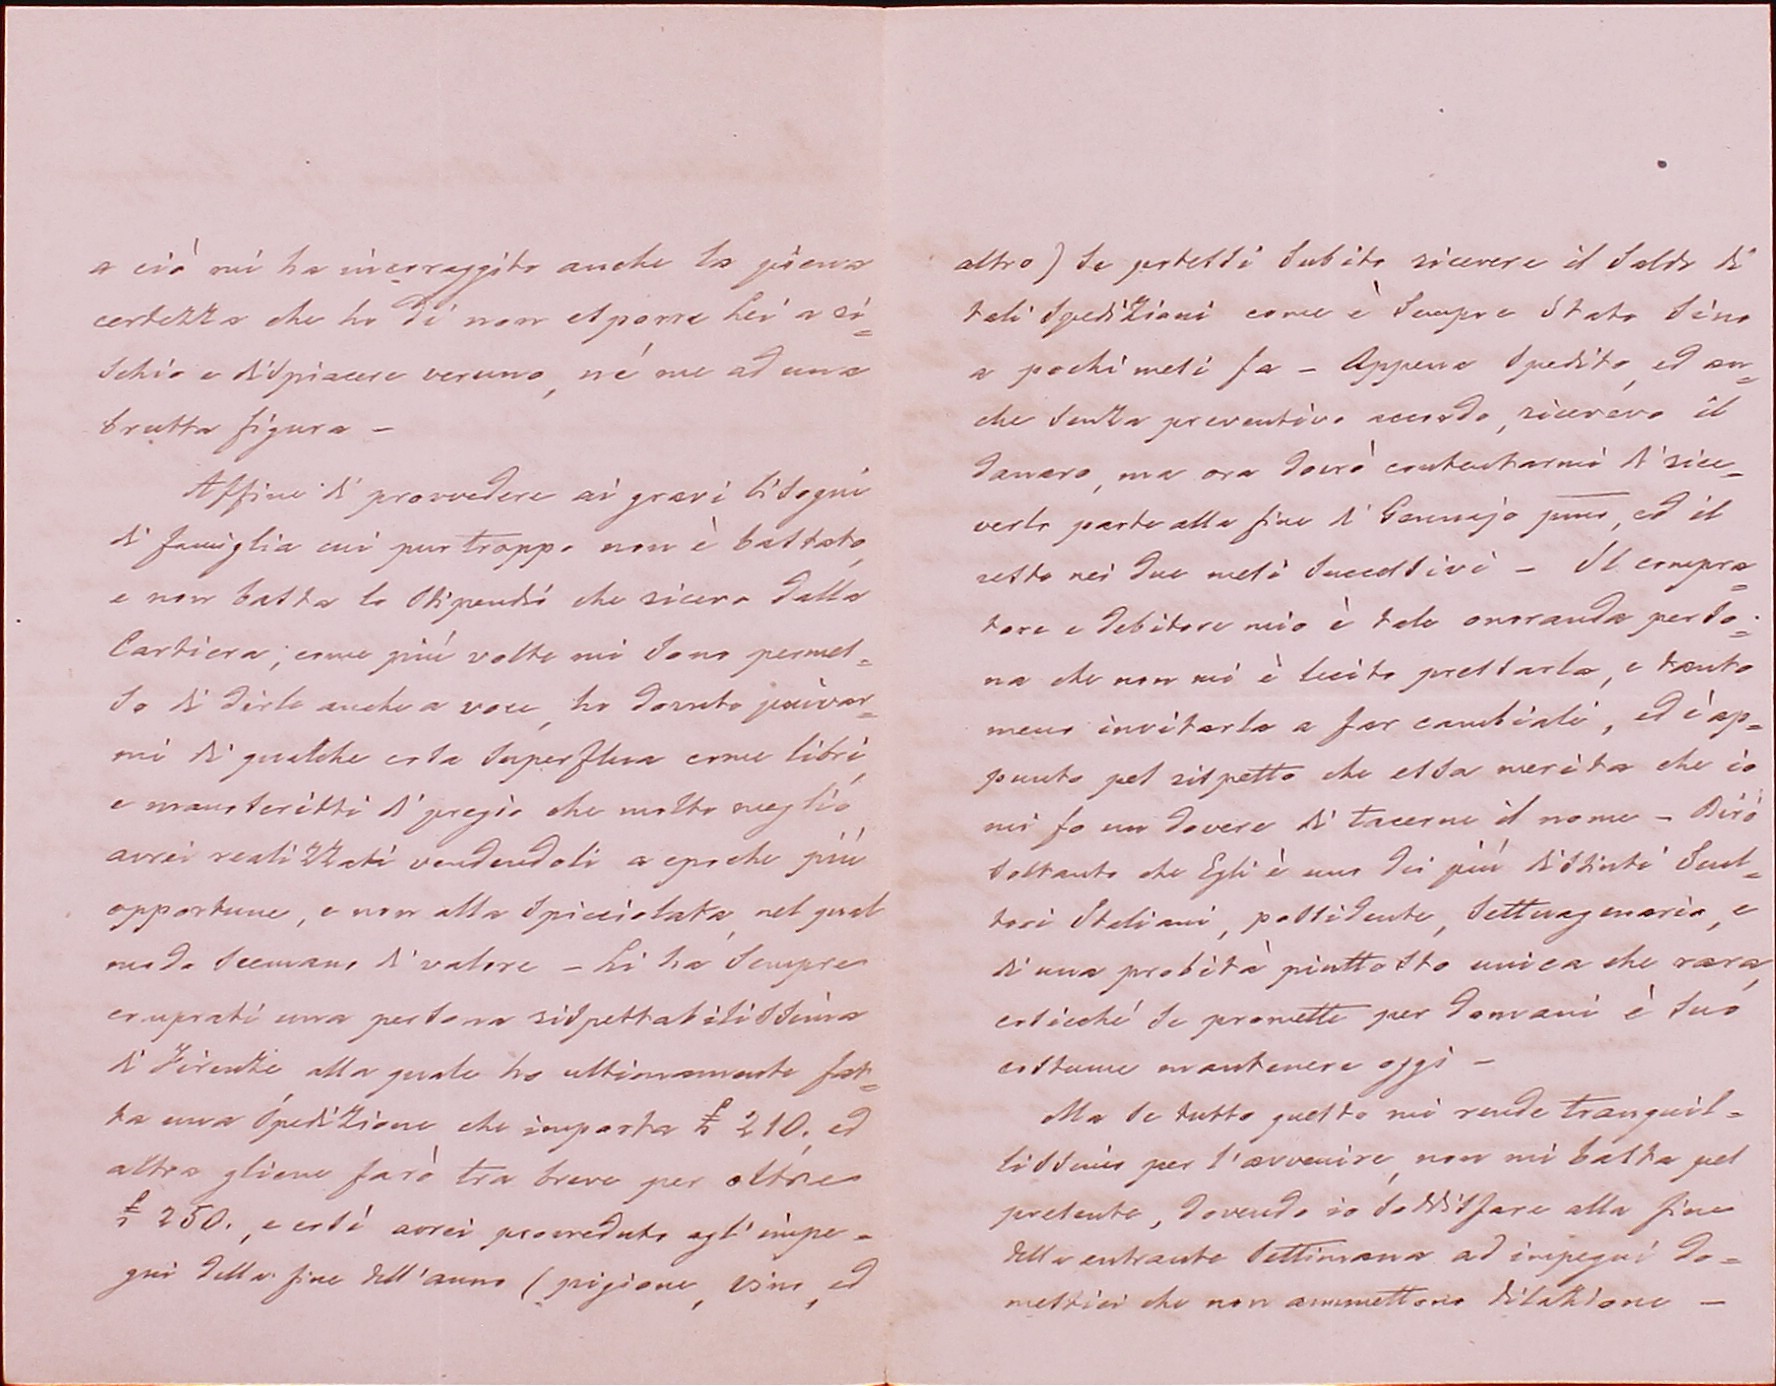 a ciò mi ha incorraggito anche la piena
certezza che ho di non esporre Lei a ri=
schio e dispiacere veruno, né me ad una
brutta figura –
Affine di provvedere ai gravi bisogni
di famiglia cui pur troppo non è bastato,
e non basta lo stipendio che ricevo dalla
Cartiera; come più volte mi sono permes=
so di dirle anche a voce, ho dovuto privar=
mi di qualche cosa superflua come libri,
e manoscritti di pregio che molto meglio
avrei realizzati vendendoli a epoche più
opportune, e non alla spicciolata, nel qual
modo scemano di valore – Li ha sempre
comprati una persona rispettabilissima
di Firenze, alla quale ho ultimamente fat=
ta una spedizione che importa £ 210., ed
altra gliene farò tra breve per oltre
£ 250., e così avrei provveduto agl'impe=
gni della fine dell'anno (pigione, vino, ed
altro) se potessi subito ricevere il saldo di
tali spedizioni come è sempre stato sino
a pochi mesi fa – Appena spedito, ed an=
che senza preventivo accordo, ricevevo il
danaro, ma ora dovrò contentarmi di rice=
verlo parte alla fine di Gennajo pmo, ed il
resto nei due mesi successivi – Il compra=
tore e debitore mio è tale onoranda perso=
na che non mi è lecito pressarla, e tanto
meno invitarla a far cambiali, ed è ap=
punto pel rispetto che essa merita che io
mi fo un dovere di tacerne il nome – Dirò
soltanto che Egli è uno dei più distinti Scul=
tori Italiani, possidente, settuagenario, e
di una probità piuttosto unica che rara,
cosicché se promette per domani è suo
costume mantenere oggi –
Ma se tutto questo mi rende tranquil=
lissimo per l'avvenire, non mi basta pel
presente, dovendo io soddisfare alla fine
della entrante settimana ad impegni do=
mestici che non ammettono dilazione –